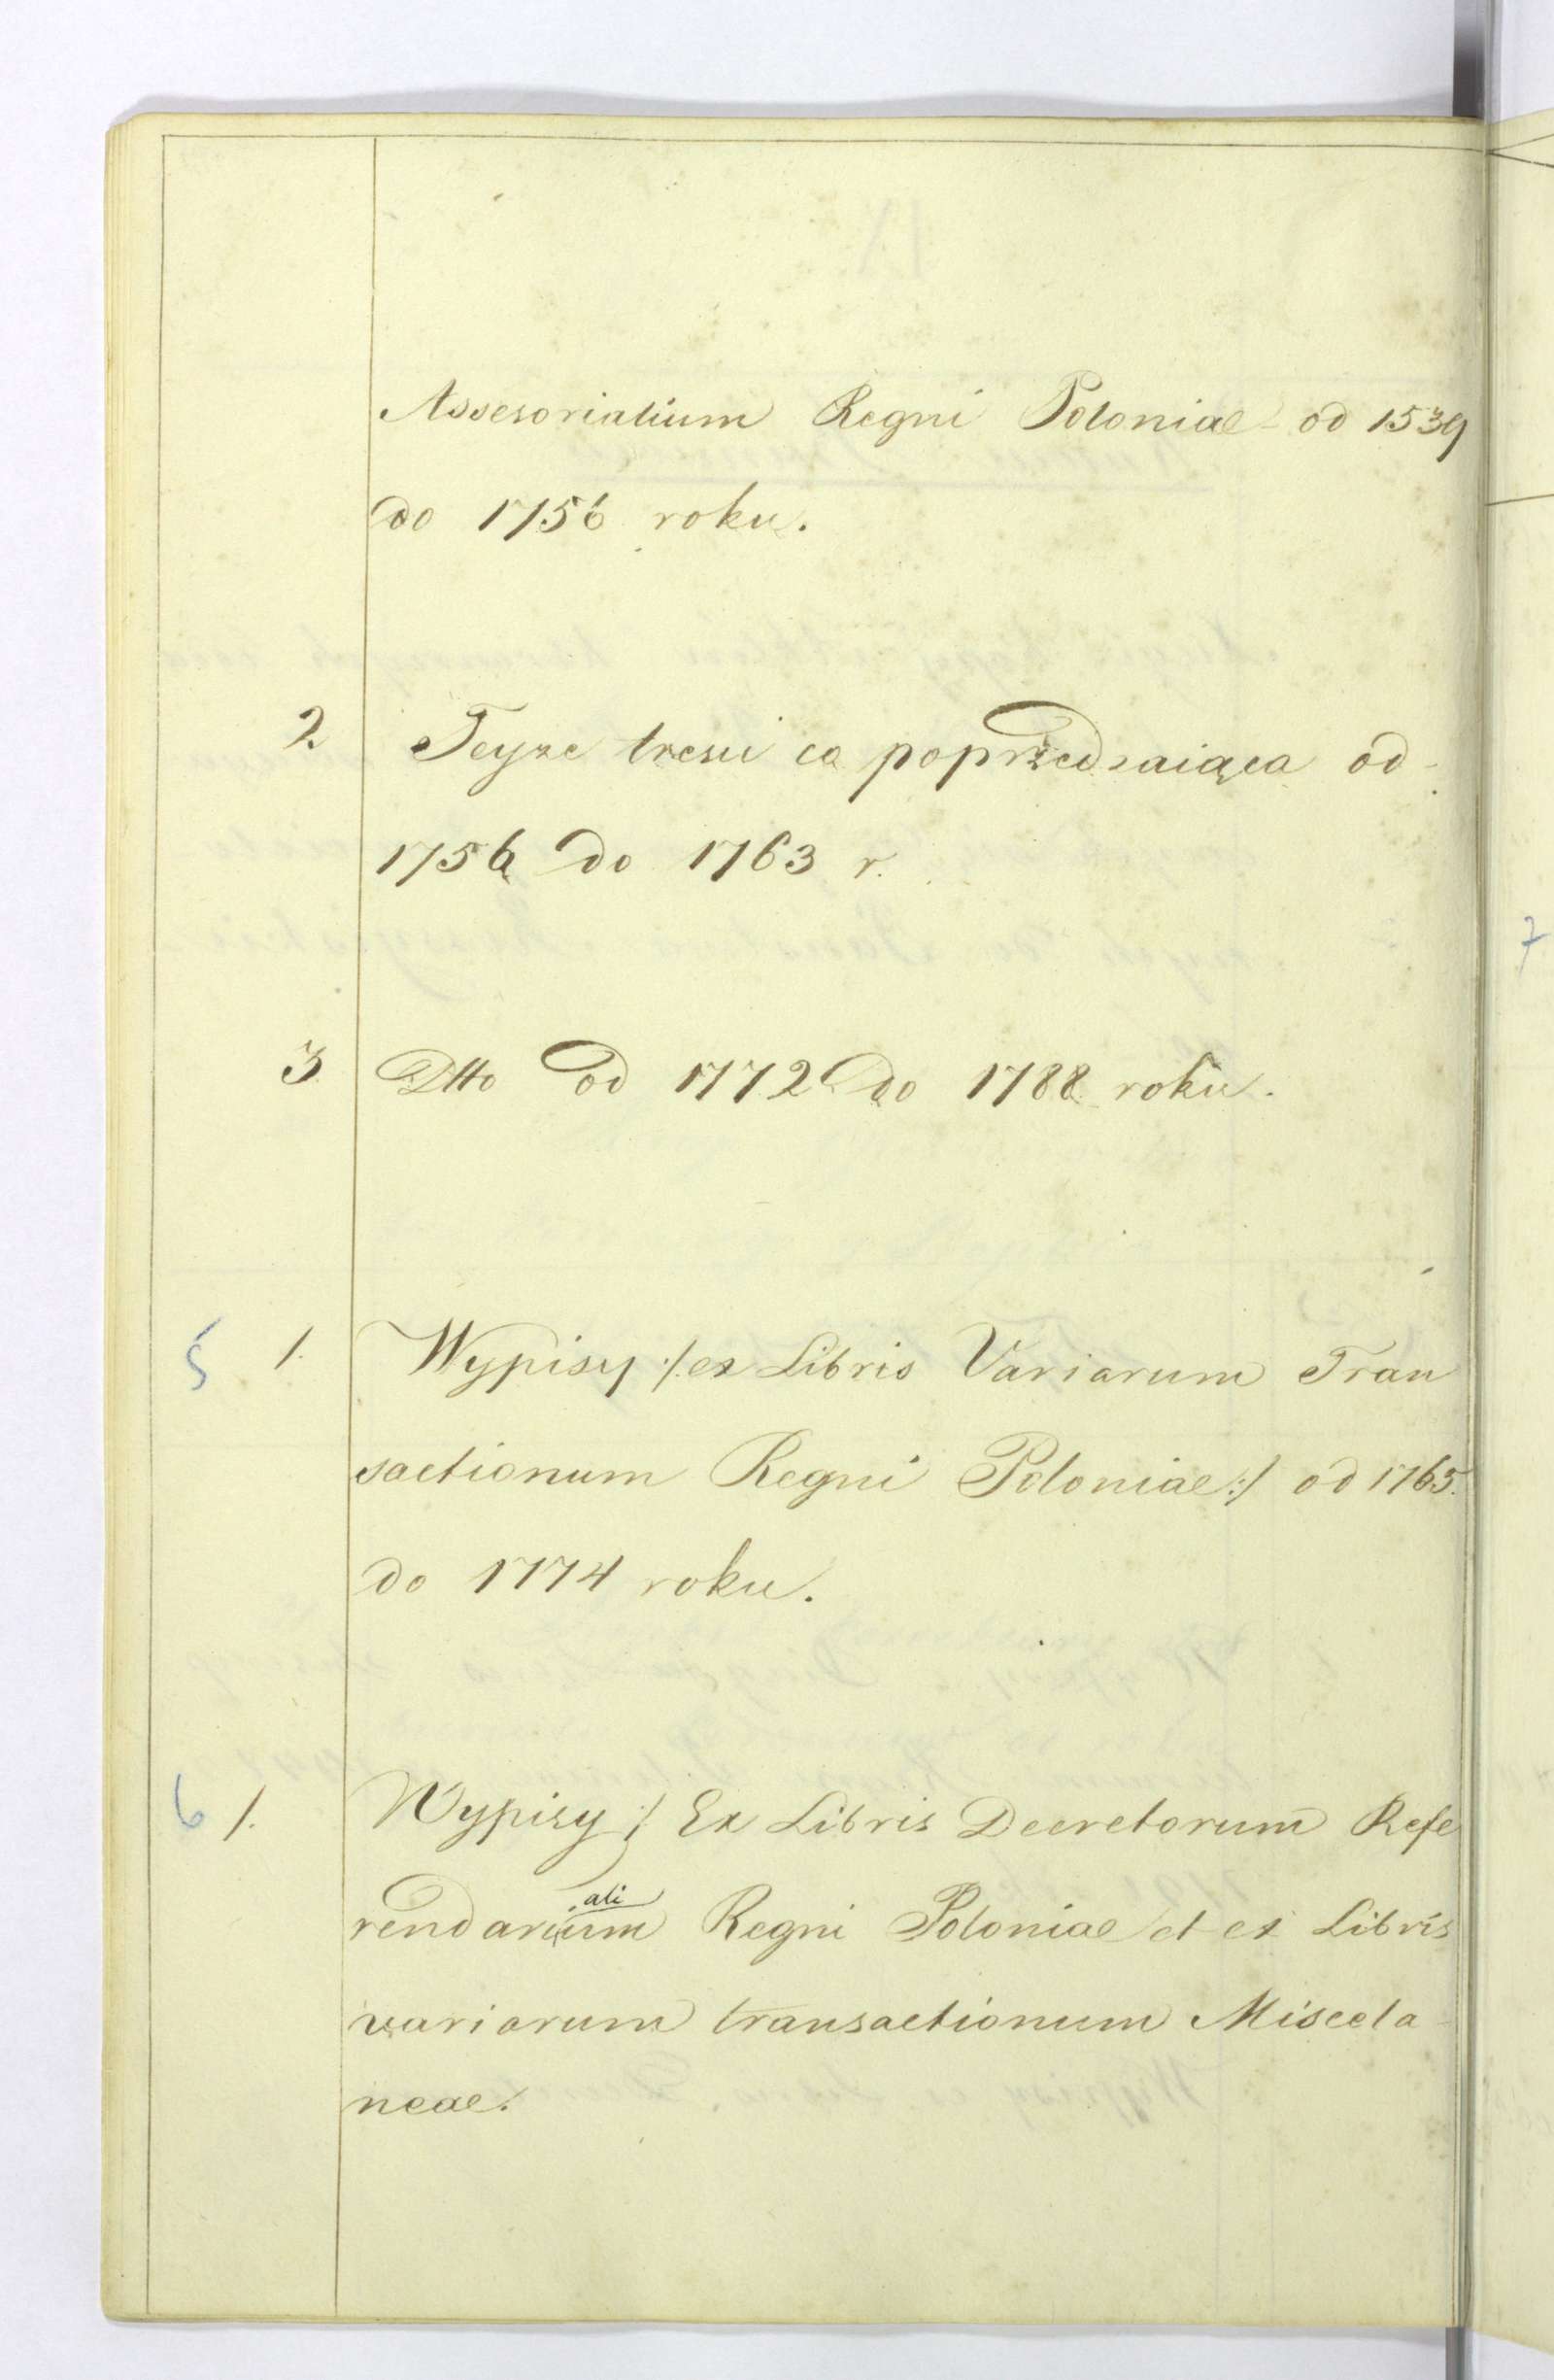 Assesorialium Regni Poloniae od 1539
do 1756 roku.
2. Teyze tresci co poprzedzaiąca od
1756 do 1763 r.
3. Dtto od 1772 do 1788 roku.
5 1. Wypisy :/ ex Libris Variarum Tran
sactionum Regni Poloniae :/ od 1765.
do 1774 roku.
6 1. Wypisy :/ Ex Libris Decretorum Refe
rendarialium Regni Poloniae et ex Libris
variarum transactionum Miscela-
neae.
7